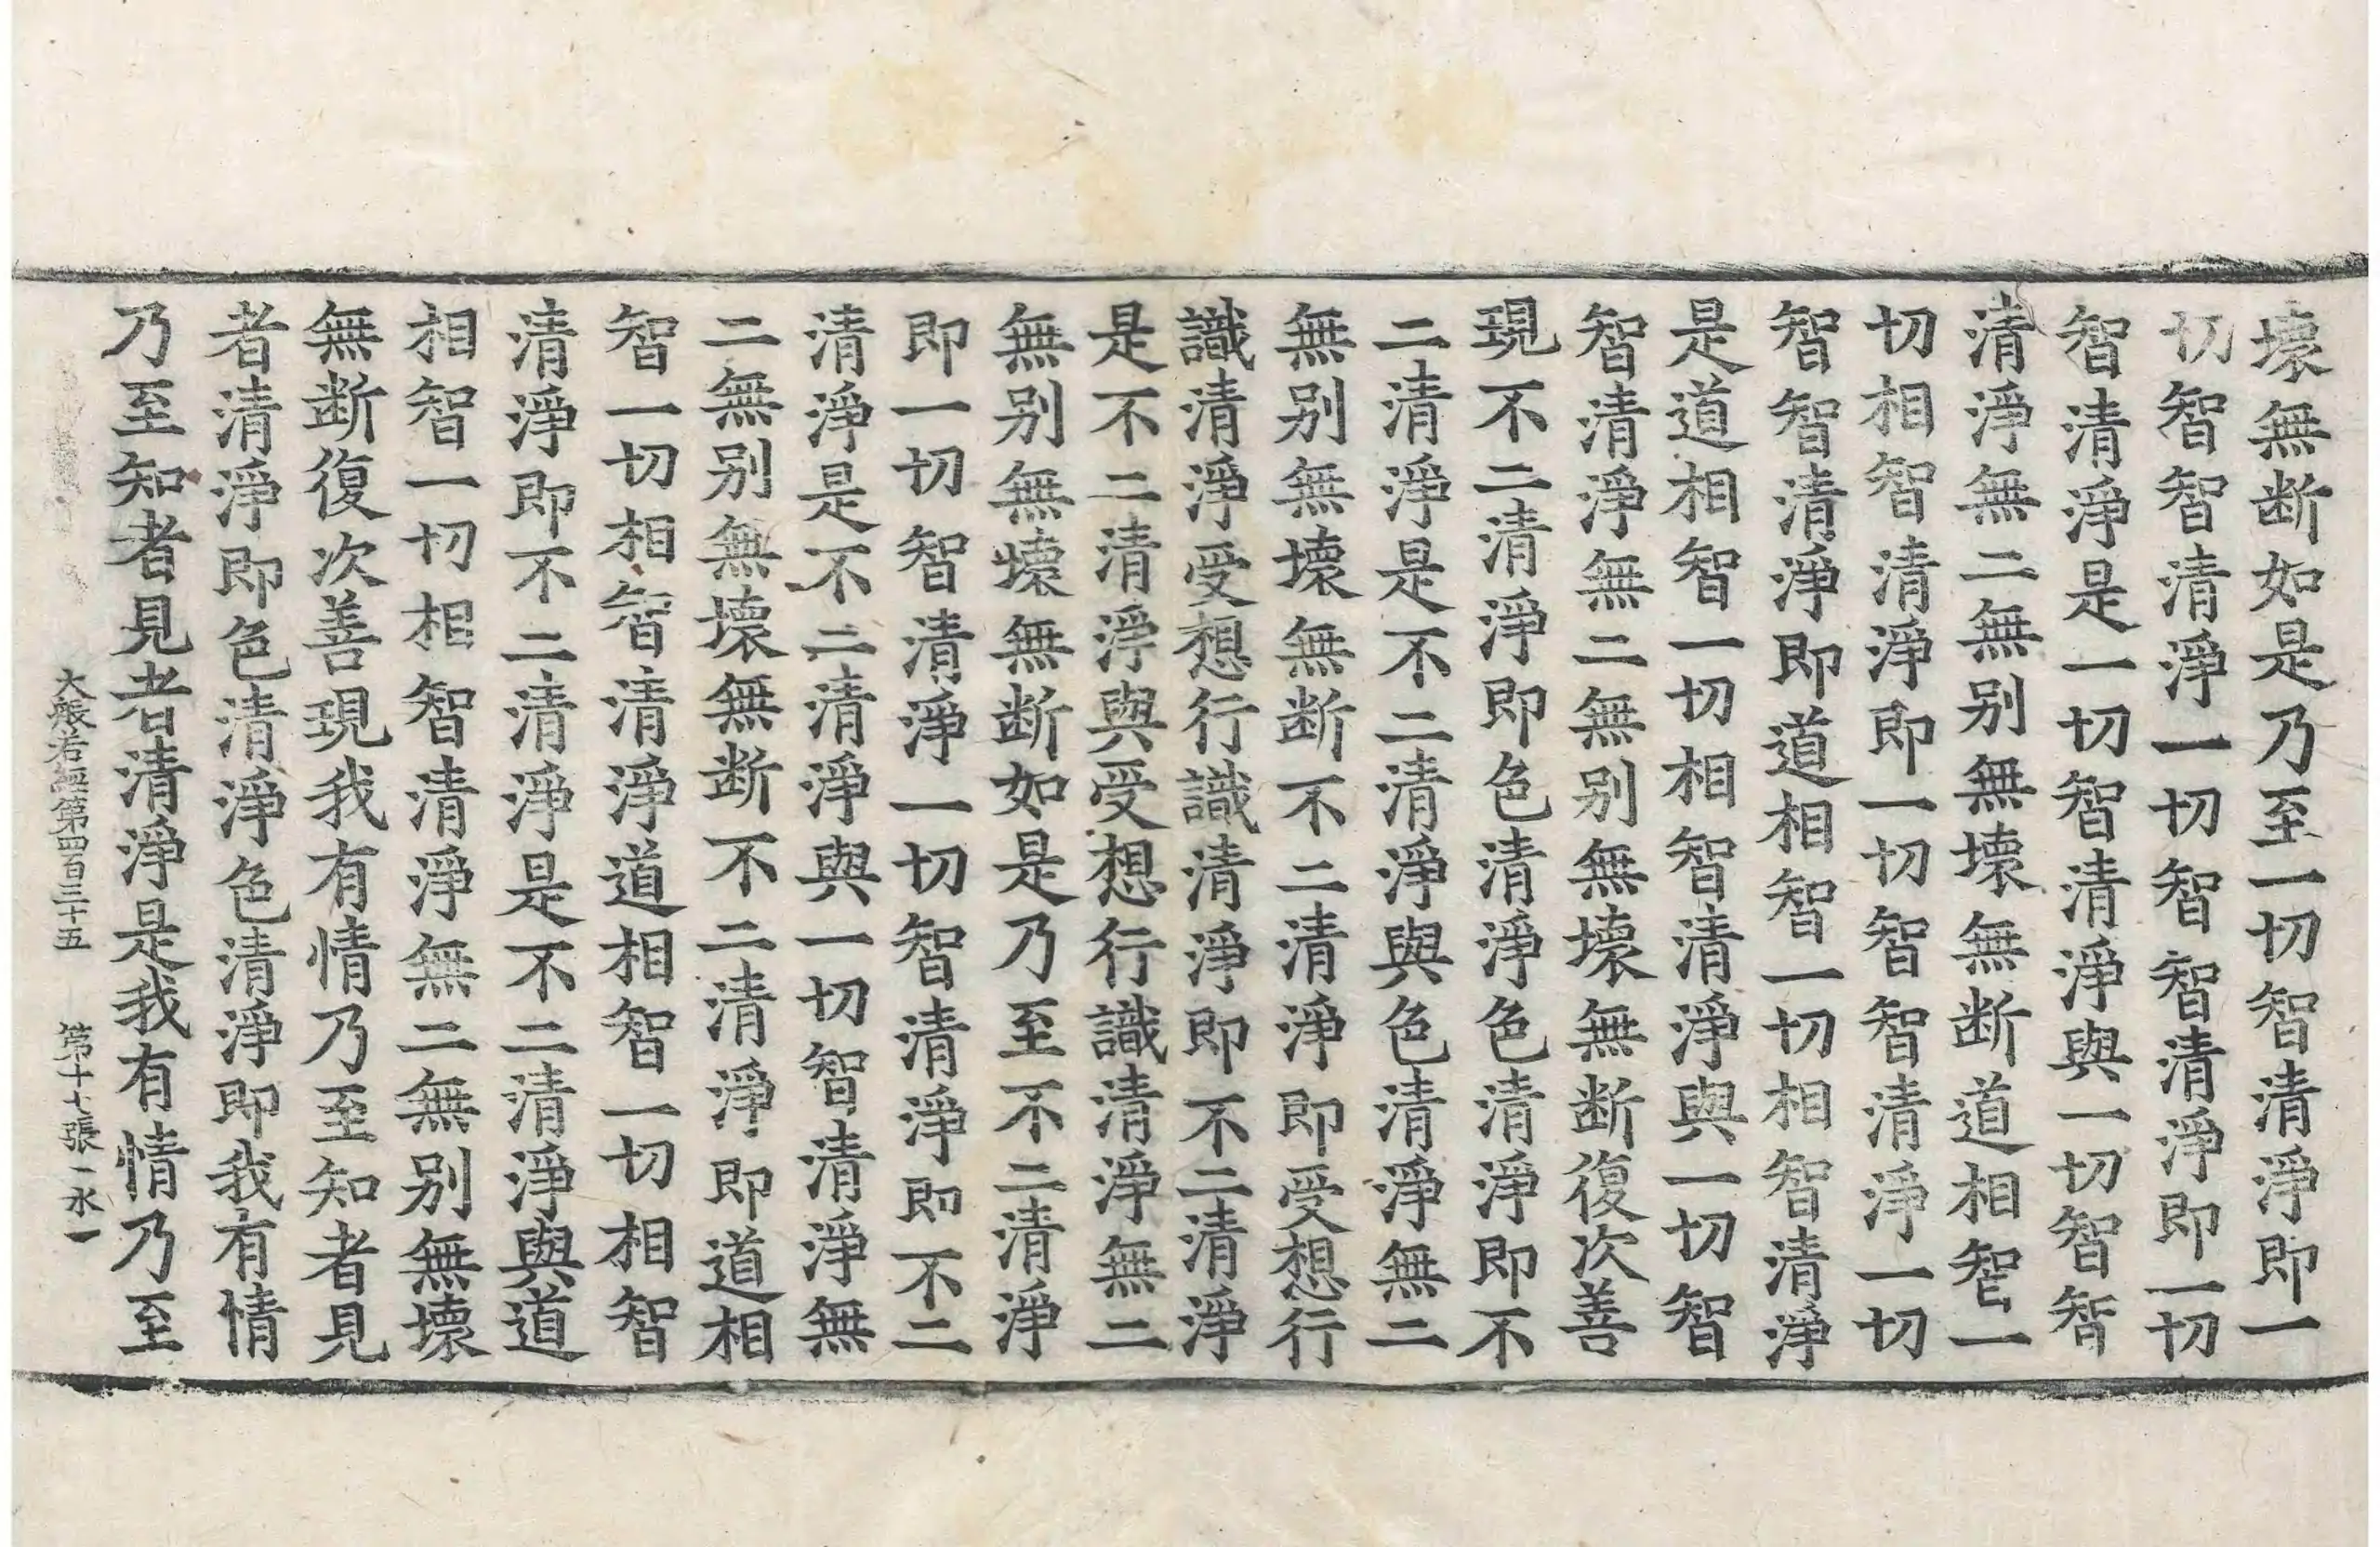 壞無断如是乃至一切智清淨即一
切智智清淨一切智智清淨即一切
智清淨是一切智清淨與一切智智
清淨無二無别無壞無断道相智一
切相智清淨即一切智智清淨一切
智智清淨即道相智一切相智清淨
是道相智一切相智清淨與一切智
智清淨無二無别無壞無断復次善
現不二清淨即色清淨色清淨即不
二清淨是不二清淨與色清淨無二
無别無壞無断不二清淨即受想行
識清淨受想行識清淨即不二清淨
是不二清淨與受想行識清淨無二
無别無壞無断如是乃至不二清淨
即一切智清淨一切智清淨即不二
清淨是不二清淨與一切智清淨無
二無别無壞無断不二清淨即道相
智一切相智清淨道相智一切相智
清淨即不二清淨是不二清淨與道
相智一切相智清淨無二無别無壞
無断復次善現我有情乃至知者見
者清淨即色清淨色清淨即我有情
乃至知者見者清淨是我有情乃至
大般若經第四百三十五 第十七張 水